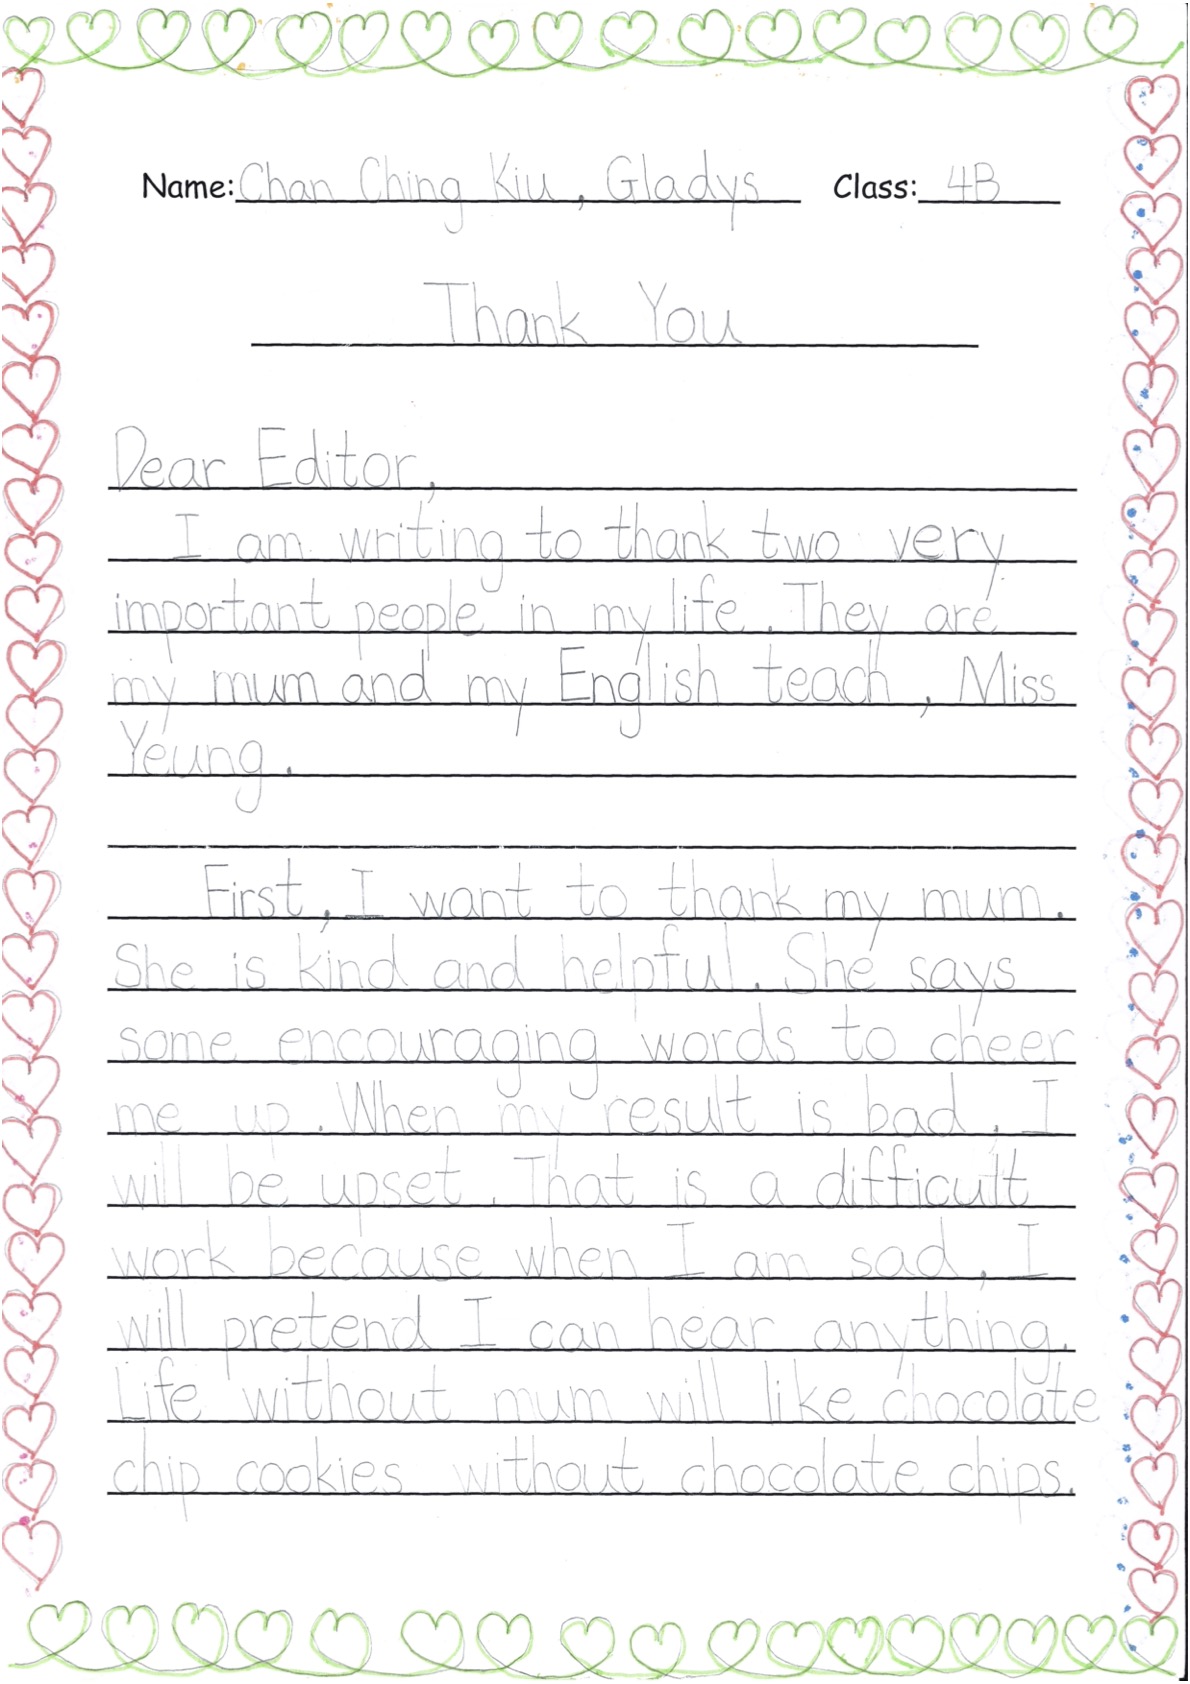 Name: Chan Ching Kiu, Gladys Class: 4B
Thank You
Dear Editor,
I am writing to thank two very
important people in my life. They are
my mum and my English teach, Miss
Yeung.
First, I want to thank my mum.
She is kind and helpful. She says
some encouraging words to cheer
me up. When my result is bad, I
will be upset. That is a difficult
work because when I am sad, I
will pretend I can hear anything.
Life without mum will like chocolate
chip cookies without chocolate chips.